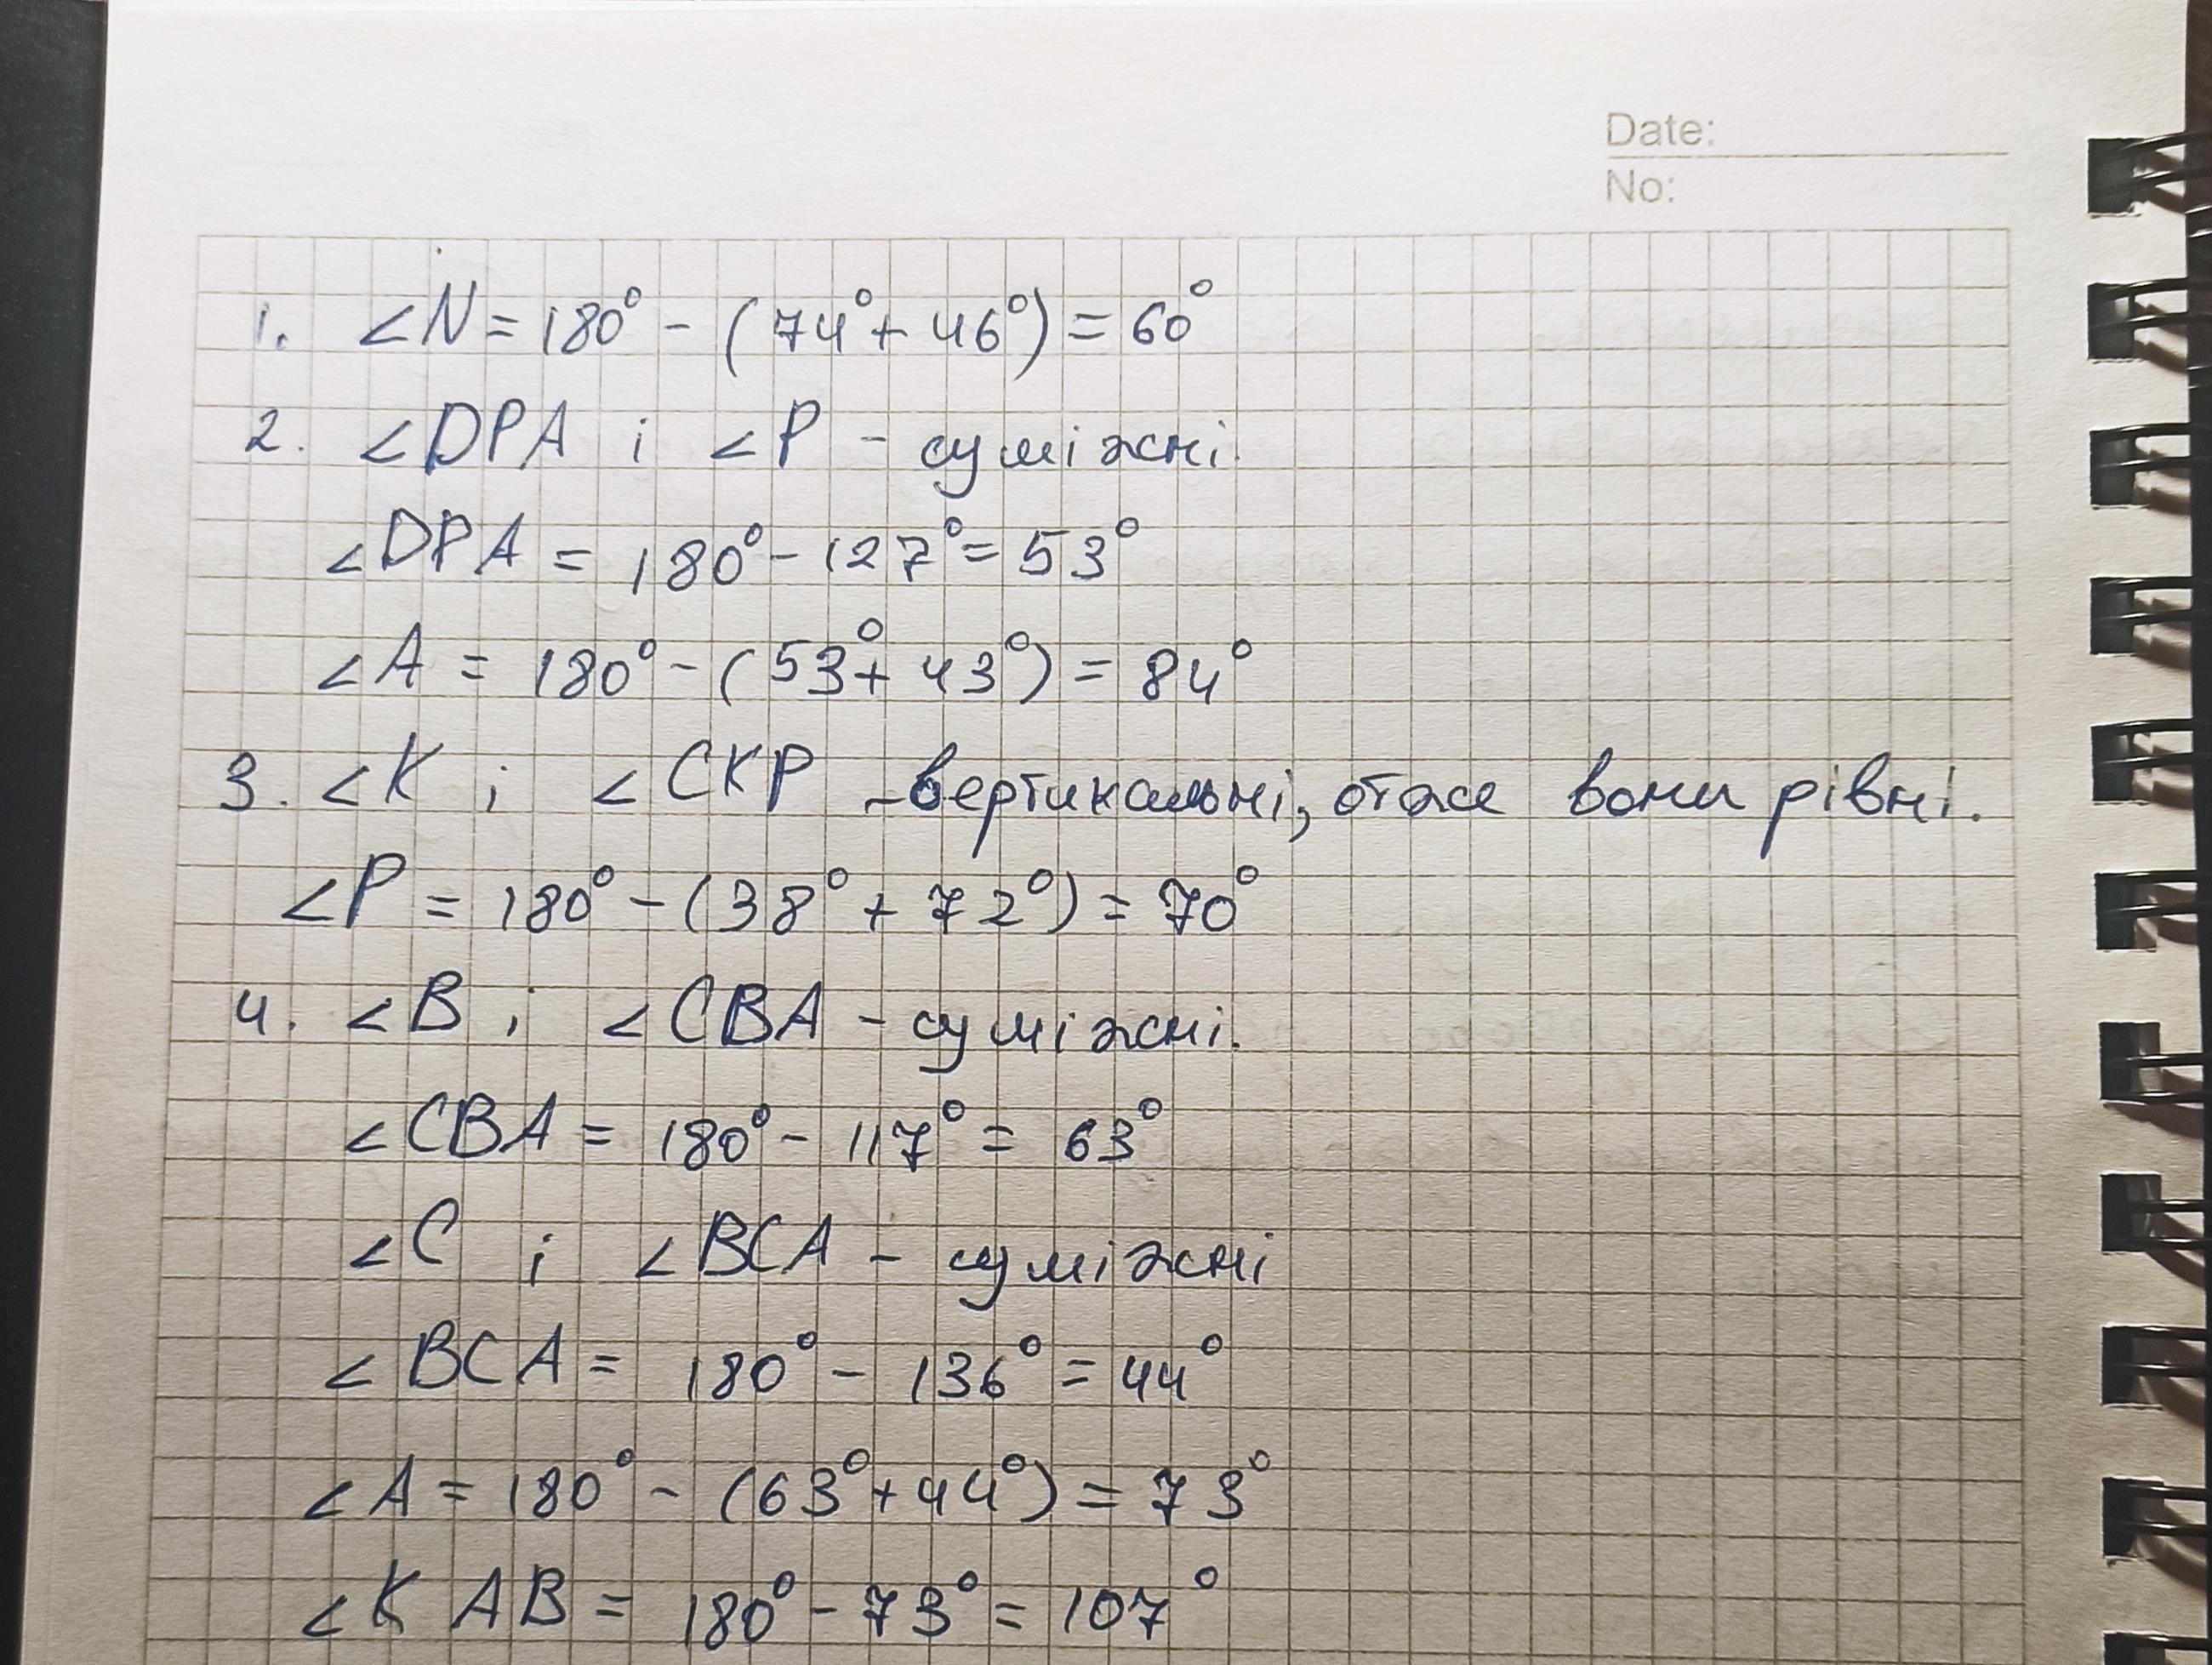 Date:
No:
1. ∠N = 180° - (74° + 46°) = 60°
2. ∠DPA і ∠P - суміжні.
∠DPA = 180° - 127° = 53°
∠A = 180° - (53° + 43°) = 84°
3. ∠K і ∠CKP - вертикальні, отже вони рівні.
∠P = 180° - (38° + 72°) = 70°
4. ∠B і ∠CBA - суміжні.
∠CBA = 180° - 117° = 63°
∠C і ∠BCA - суміжні
∠BCA = 180° - 136° = 44°
∠A = 180° - (63° + 44°) = 73°
∠KAB = 180° - 73° = 107°